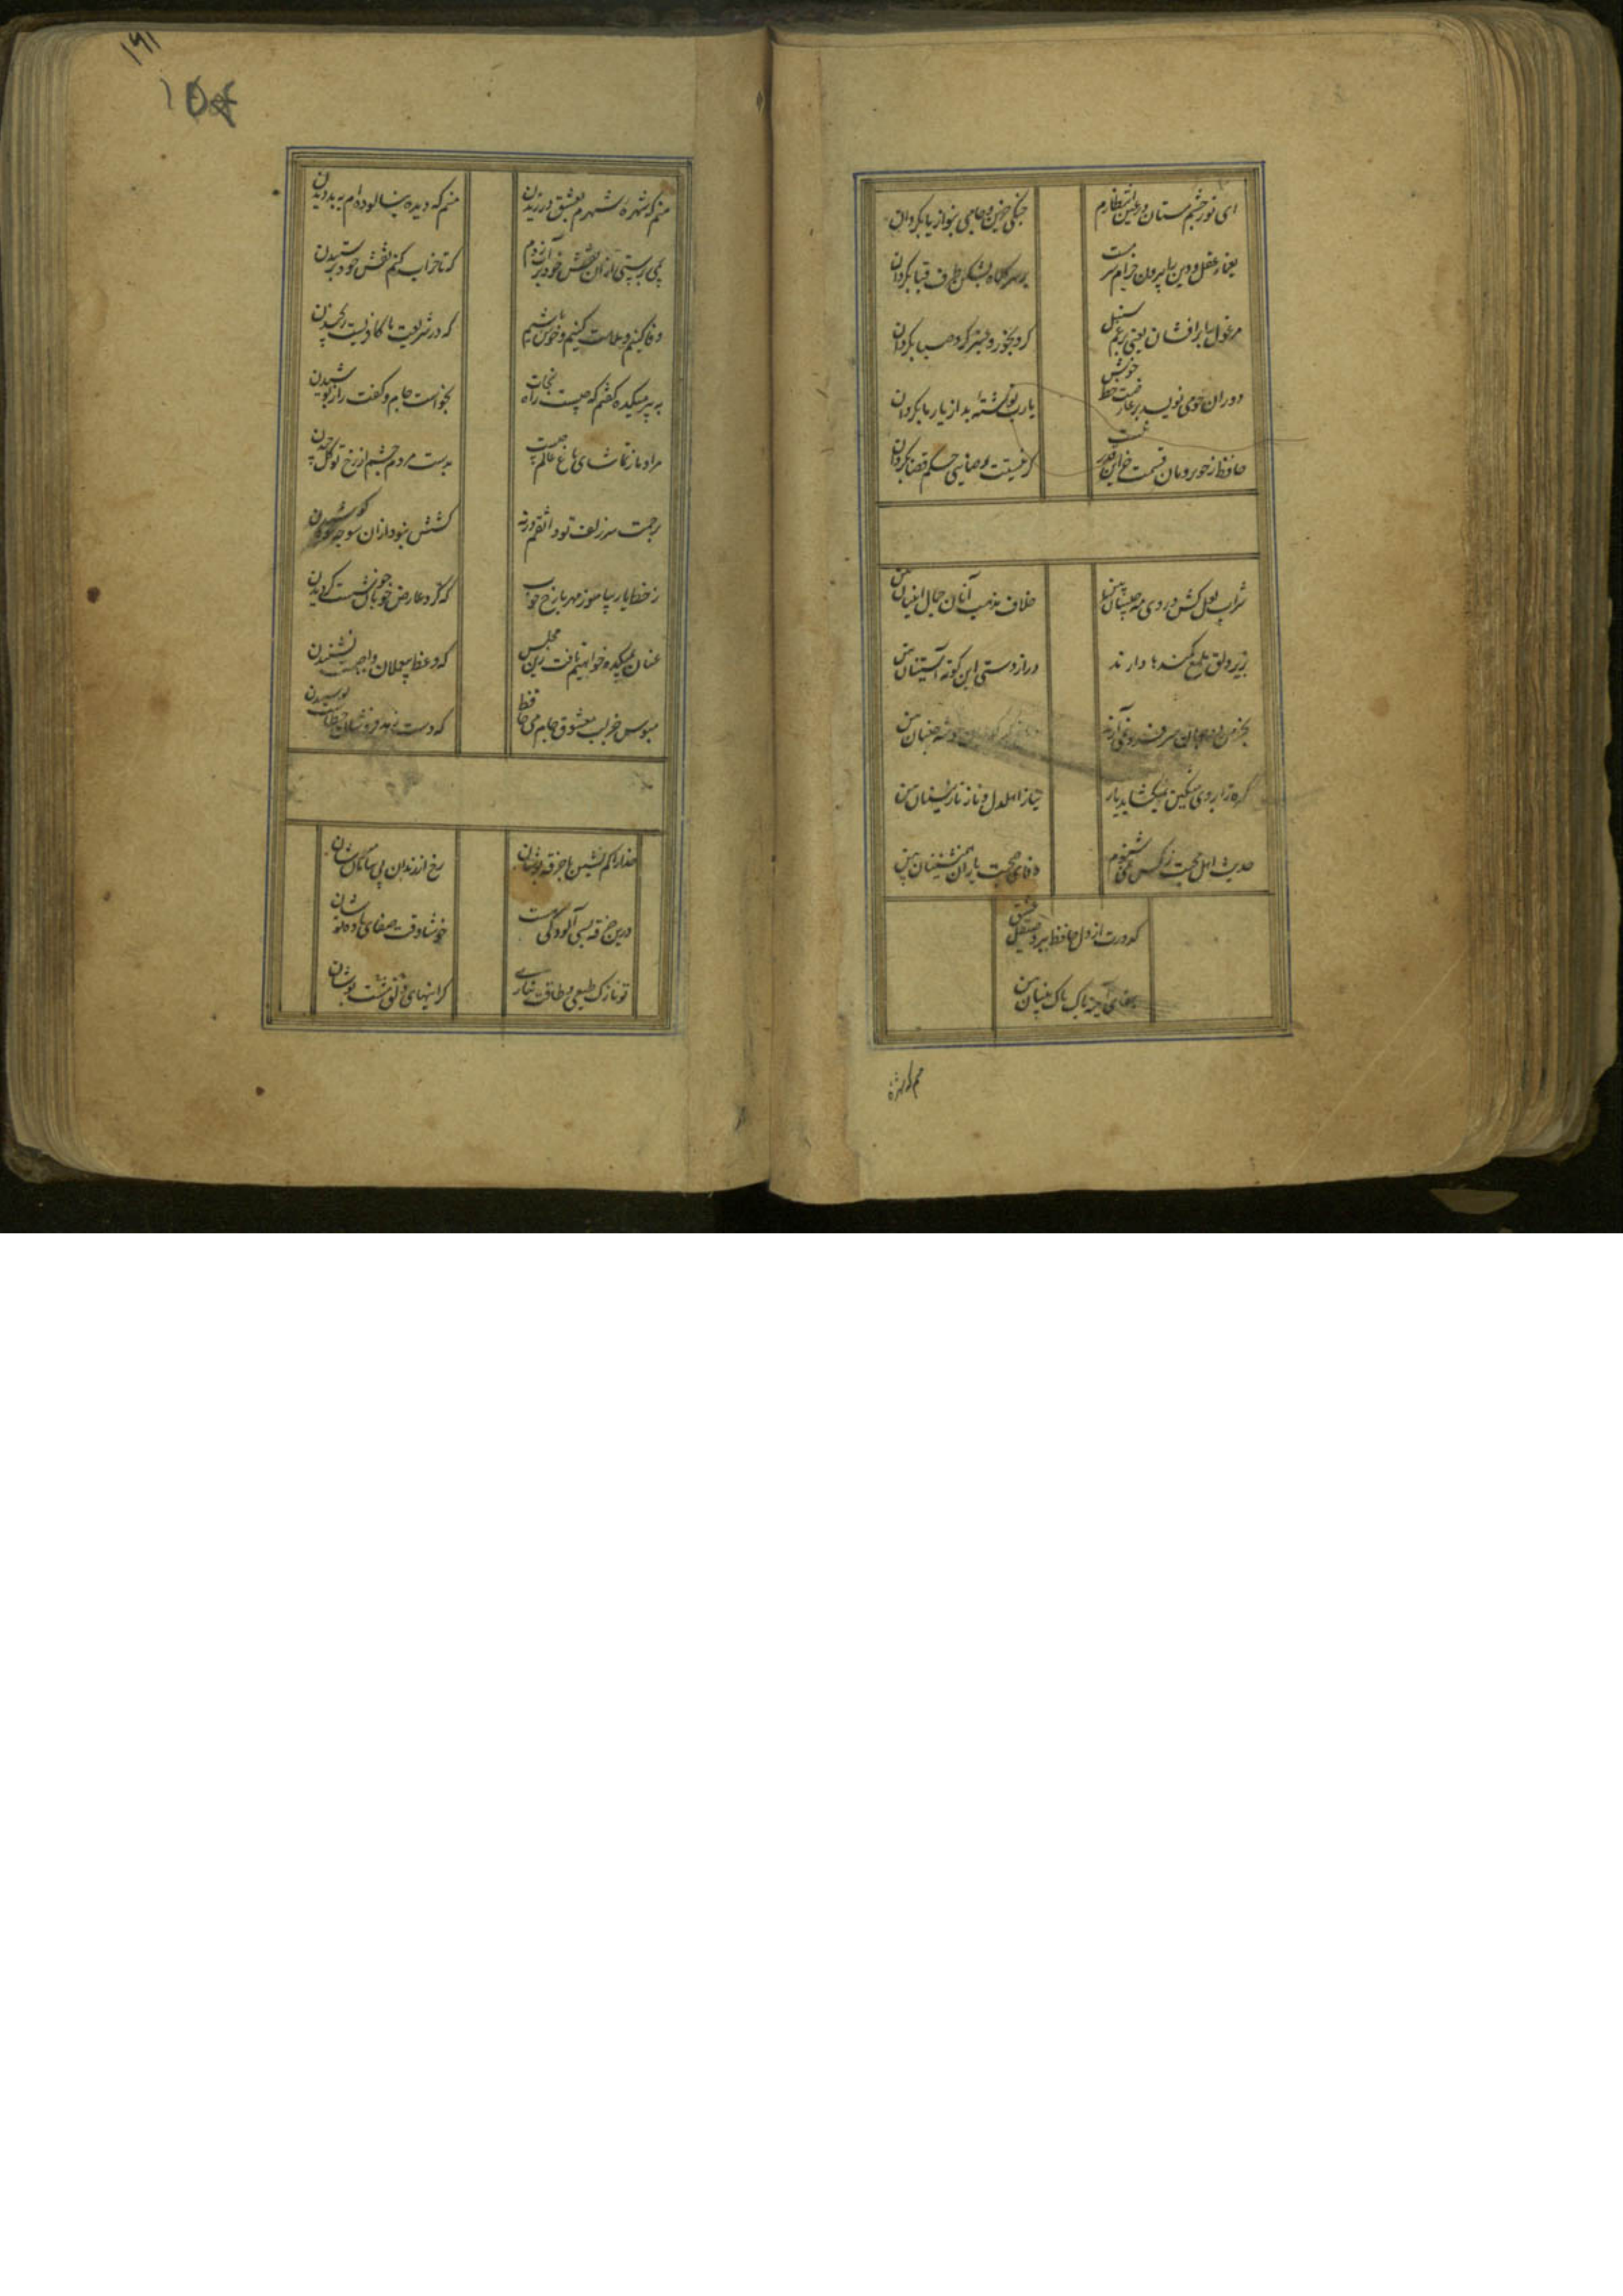 ای نور چشم مستان در عین انتظارم
چنگی حزین و جامی بنواز یا بگردان
یغمای عقل و دین را بیرون خرام سرمست
بر سر کلاه بشکن در بر قبا بگردان
مرغول را برافشان یعنی برغم سنبل
گرد بخور و عنبر گرد صبا بگردان
دوران خوش می نویسد بر عارضت خط
یارب نوشته بد از یار ما بگردان
حافظ ز خوبرویان قسمت جز این قدر نیست
گر نیستت رضایی حکم قضا بگردان
شراب لعل کش و روی مه جبینان بین
خلاف مذهب آنان جمال اینان بین
بزیر دلق ملمع کمندها دارند
درازدستی این کوته آستینان بین
بخرمن دو جهان سر فرو نمی آرند
خوشه چینان بین
گره ز ابروی مشکین نمیکشاید یار
نیاز اهل دل و ناز نازنینان بین
حدیث اهل محبت ز کس نمی شنوم
وفای صحبت یاران همنشینان بین
کدورت از دل حافظ ببرد صیقل عشق
صفای آینه پاک پاک بینان بین
منم که شهره
۱۶۱
منم که شهره شهرم بعشق ورزیدن
منم که دیده نیالوده ام به بد دیدن
بمی پرستی از آن نقش خود بر آب زدم
که تا خراب کنم نقش خود پرستیدن
وفا کنیم و ملامت کشیم و خوش باشیم
که در شریعت ما کافریست رنجیدن
به پیر میکده گفتم که چیست راه نجات
بخواست جام و گفت راز پوشیدن
مراد ما ز تماشای باغ عالم چیست
بدست مردم چشم از رخ تو گل چیدن
برحمت سر زلف تو واثقم ورنه
کشش نبود از آن سو چه سود کوشیدن
ز خط یار بیاموز مهر با رخ خوب
که گرد عارض خوبان خوشست گردیدن
عنان بمیکده خواهیم تافت زین مجلس
که وعظ بیعملان واجبست نشنیدن
مبوس جز لب معشوق و جام می حافظ
که دست زهد فروشان خطاست بوسیدن
خدا را کم نشین با خرقه پوشان
رخ از رندان بی سامان مپوشان
درین خرقه بسی آلودگی هست
خوشا وقت صفای باده نوشان
تو نازک طبعی و طاقت نیاری
گرانیهای دلق مشت پوشان